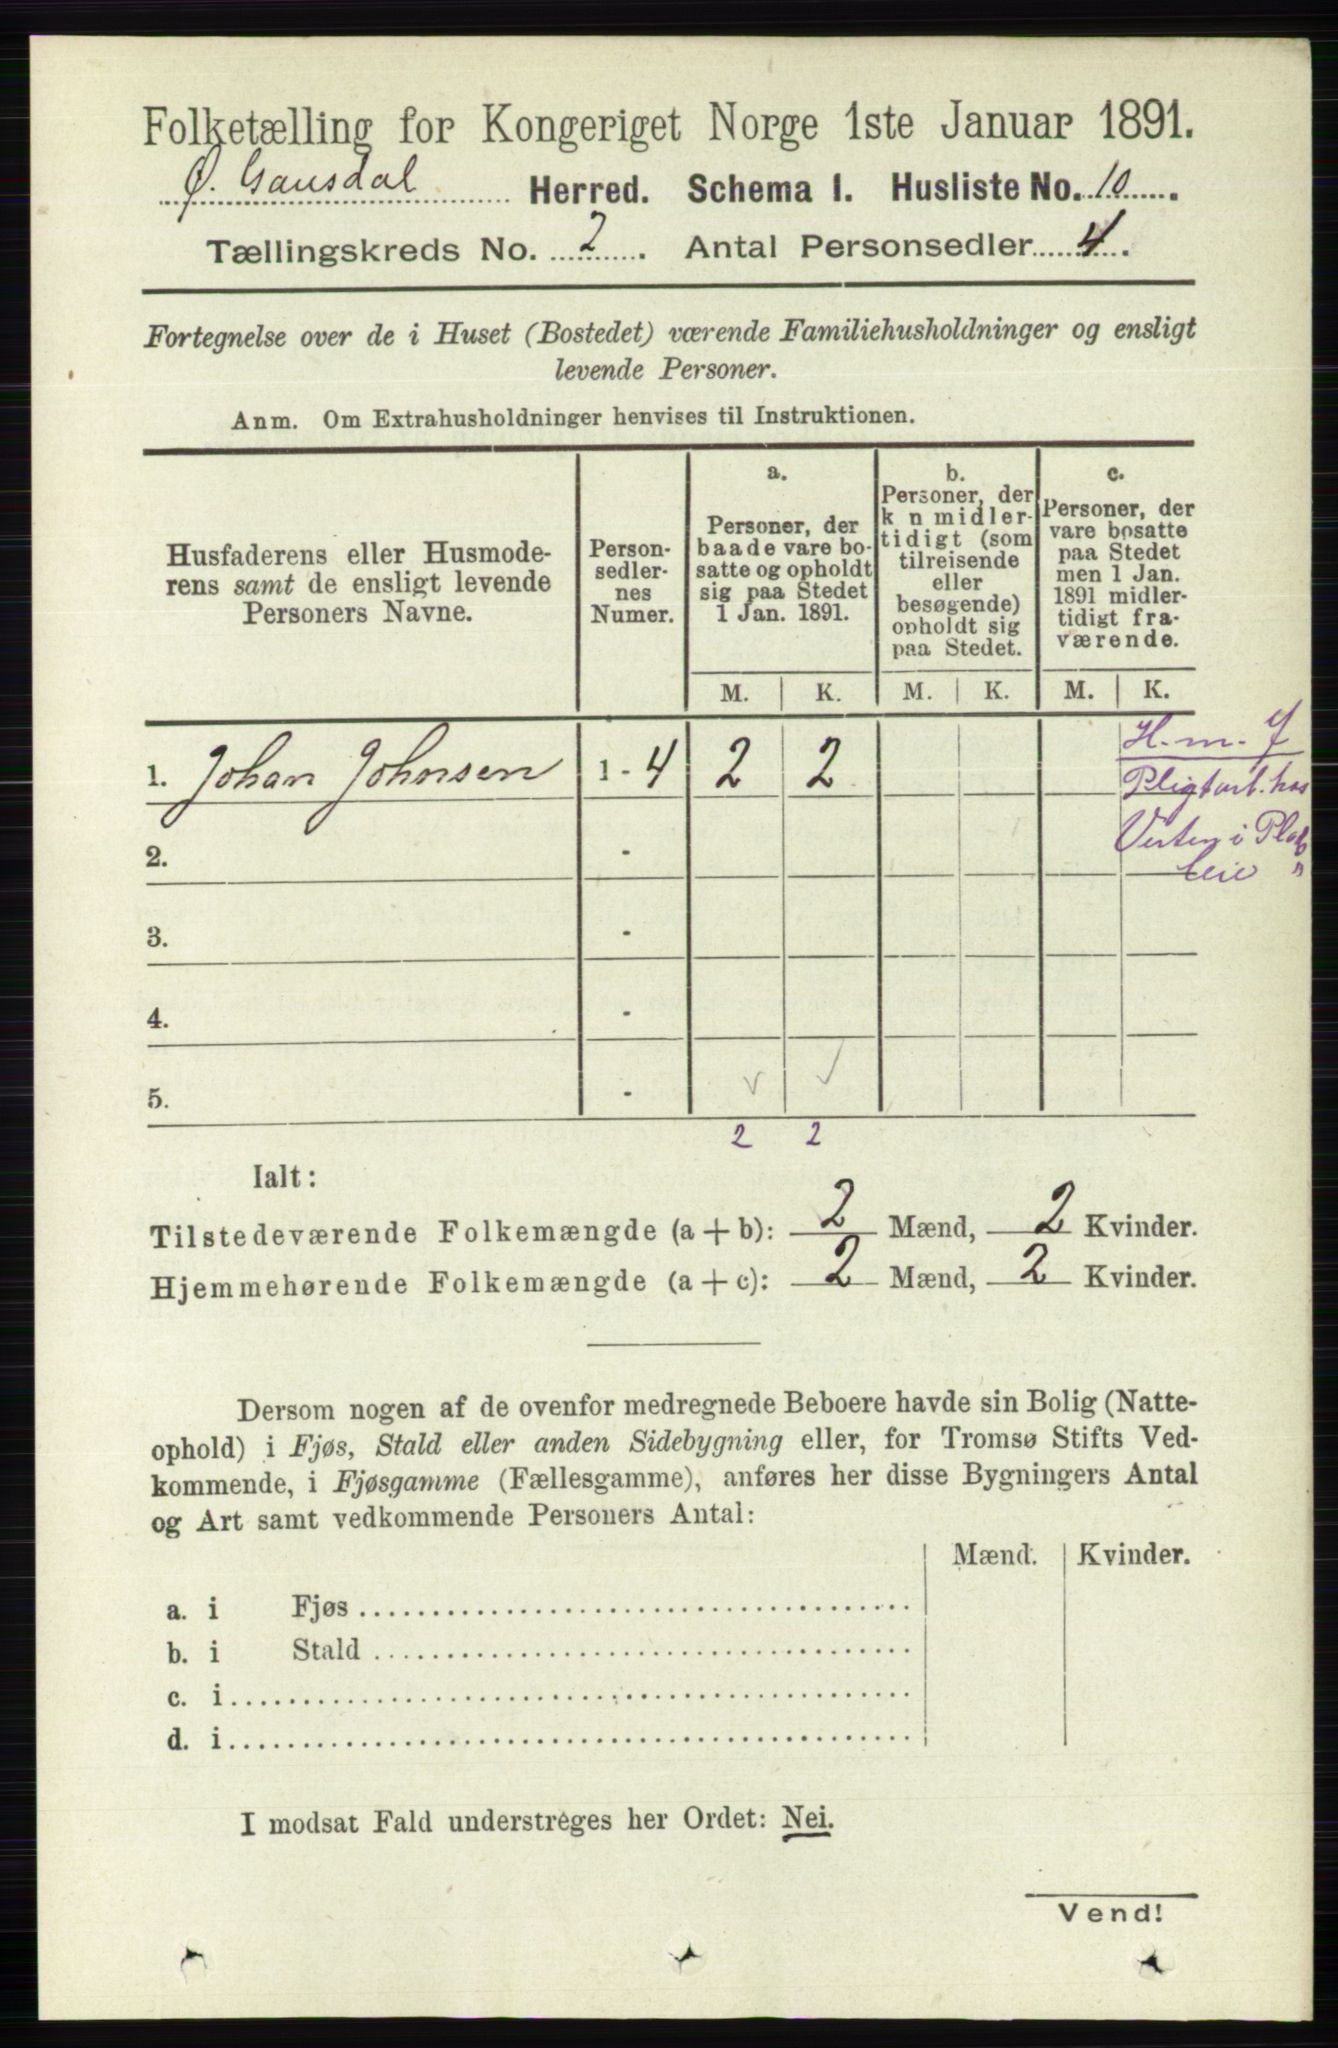 Folketælling for Kongeriget Norge 1ste Januar 1891.
Ø. Gausdal Herred. Schema I. Husliste No. 10.
Tællingskreds No. 2. Antal Personsedler 4.
Fortegnelse over de i Huset (Bostedet) værende Familiehusholdninger og ensligt
levende Personer.
Anm. Om Extrahusholdninger henvises til Instruktionen.
Husfaderens eller Husmode-
rens samt de ensligt levende
Personers Navne.
Person-
sedler-
nes
Numer.
a.
Personer, der
baade vare bo-
satte og opholdt
sig paa Stedet
1 Jan. 1891.
b.
Personer, der
k n midler-
tidigt (som
tilreisende
eller
besøgende)
opholdt sig
paa Stedet.
c.
Personer, der
vare bosatte
paa Stedet
men 1 Jan.
1891 midler-
tidigt fra-
værende.
M. K. M. K. M. K.
1. Johan Johnsen 1 - 4 2 2
H. m. J
Pligtarb. hos
Verten i Plads
leie "
2. -
3. -
4. -
5. -
2 2
Ialt:
Tilstedeværende Folkemængde (a + b): 2 Mænd, 2 Kvinder.
Hjemmehørende Folkemængde (a + c): 2 Mænd, 2 Kvinder.
Dersom nogen af de ovenfor medregnede Beboere havde sin Bolig (Natte-
ophold) i Fjøs, Stald eller anden Sidebygning eller, for Tromsø Stifts Ved-
kommende, i Fjøsgamme (Fællesgamme), anføres her disse Bygningers Antal
og Art samt vedkommende Personers Antal:
Mænd. Kvinder.
a. i Fjøs
b. i Stald
c. i
d. i
I modsat Fald understreges her Ordet: Nei.
Vend!